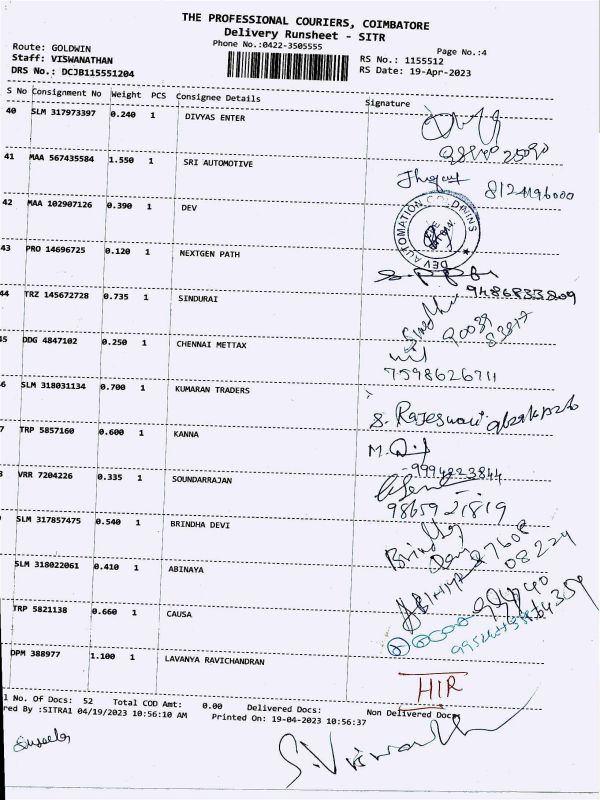 THE PROFESSIONAL COURIERS, COIMBATORE
Delivery Runsheet - SITR
Phone No.:0422-3505555
Page No.:4
Route: GOLDWIN
Staff: VISWANATHAN
DRS No.: DCJB115551204
RS No.: 1155512
RS Date: 19-Apr-2023
S No Consignment No Weight PCS Consignee Details Signature
40 SLM 317973397 0.240 1 DIVYAS ENTER
41 MAA 567435584 1.550 1 SRI AUTOMOTIVE
42 MAA 102907126 0.390 1 DEV
DEV AUTOMATION GOLDWINS
43 PRO 14696725 0.120 1 NEXTGEN PATH
9486833809
44 TRZ 145672728 0.735 1 SINDURAI
Sindhu
45 DDG 4847102 0.250 1 CHENNAI METTAX
7598626711
6 SLM 318031134 0.700 1 KUMARAN TRADERS
S. Rajeswari
7 TRP 5857160 0.600 1 KANNA
M.
9994223844
VRR 7204226 0.335 1 SOUNDARRAJAN
9865921819
SLM 317857475 0.540 1 BRINDHA DEVI
Brindha
SLM 318022061 0.410 1 ABINAYA
ABINAYA
TRP 5821138 0.660 1 CAUSA
DPM 388977 1.100 1 LAVANYA RAVICHANDRAN
HIR
l No. Of Docs: 52 Total COD Amt: 0.00 Delivered Docs: Non Delivered Docs
red By :SITRA1 04/19/2023 10:56:10 AM Printed On: 19-04-2023 10:56:37
S. Viswanathan